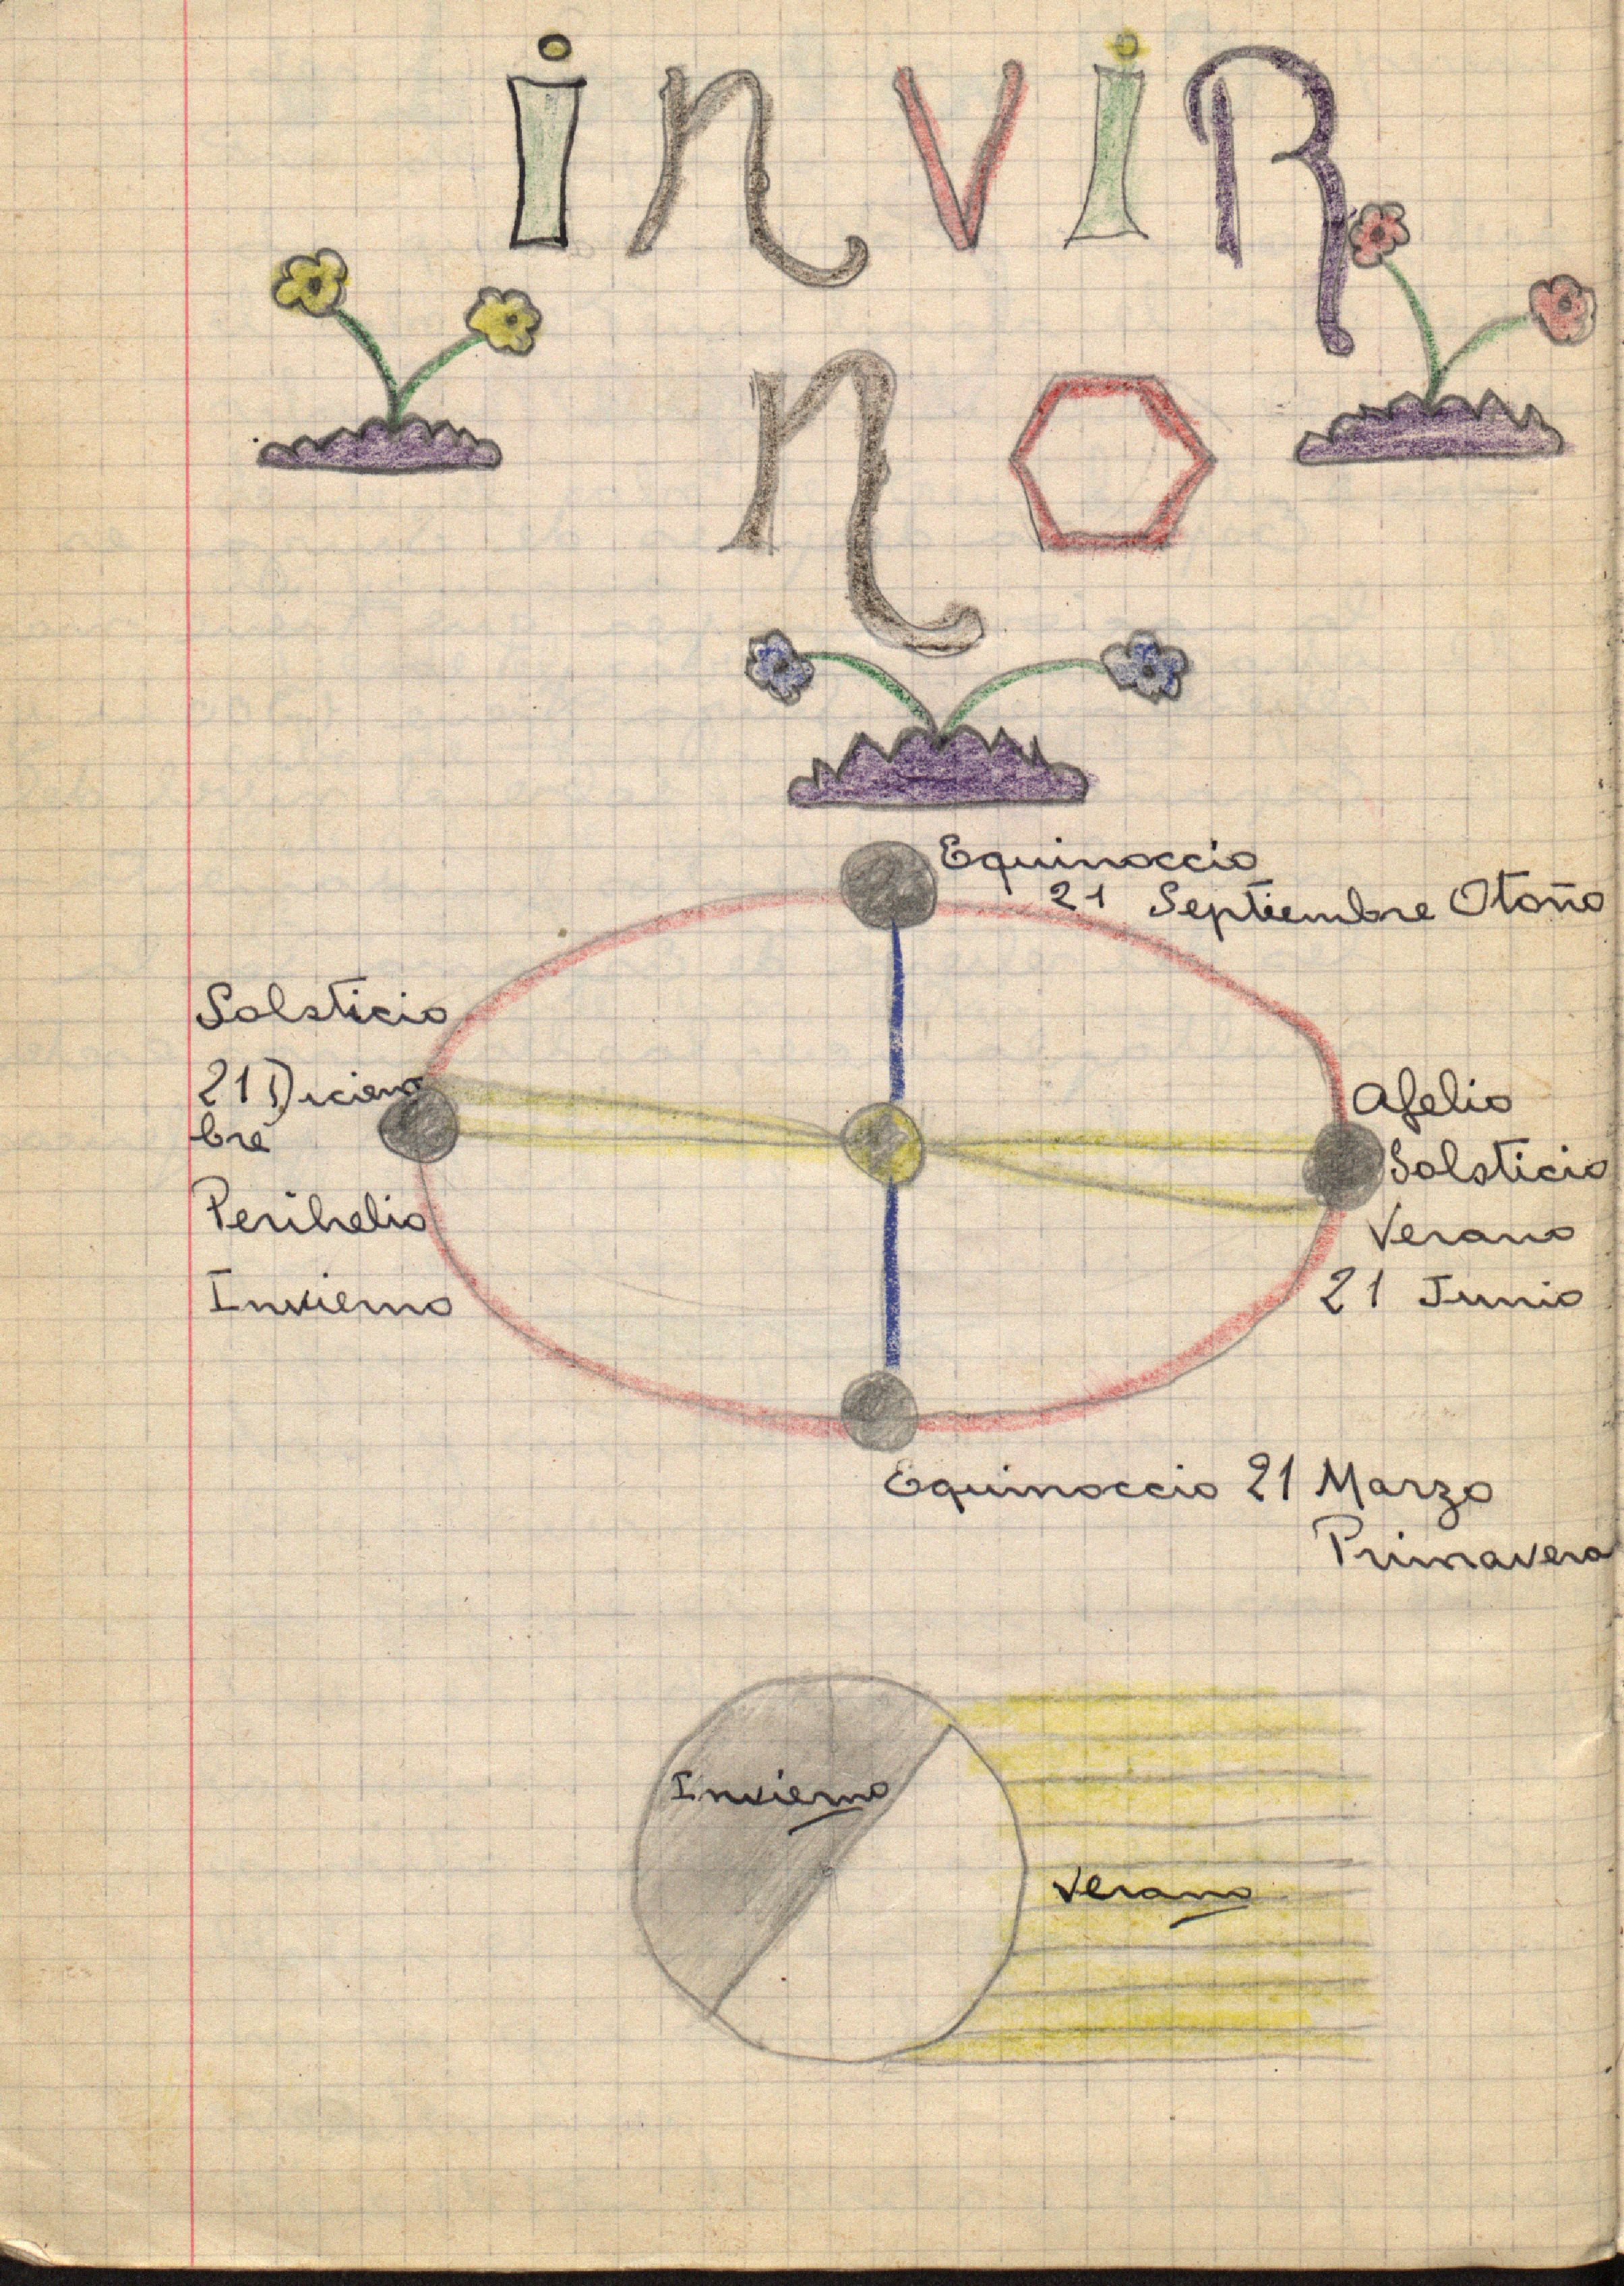 inviR
no
Equinoccio
21 Septiembre Otoño
Solsticio
21 Diciem
bre
Perihelio
Invierno
Afelio
Solsticio
Verano
21 Junio
Equinoccio 21 Marzo
Primavera
Invierno
Verano